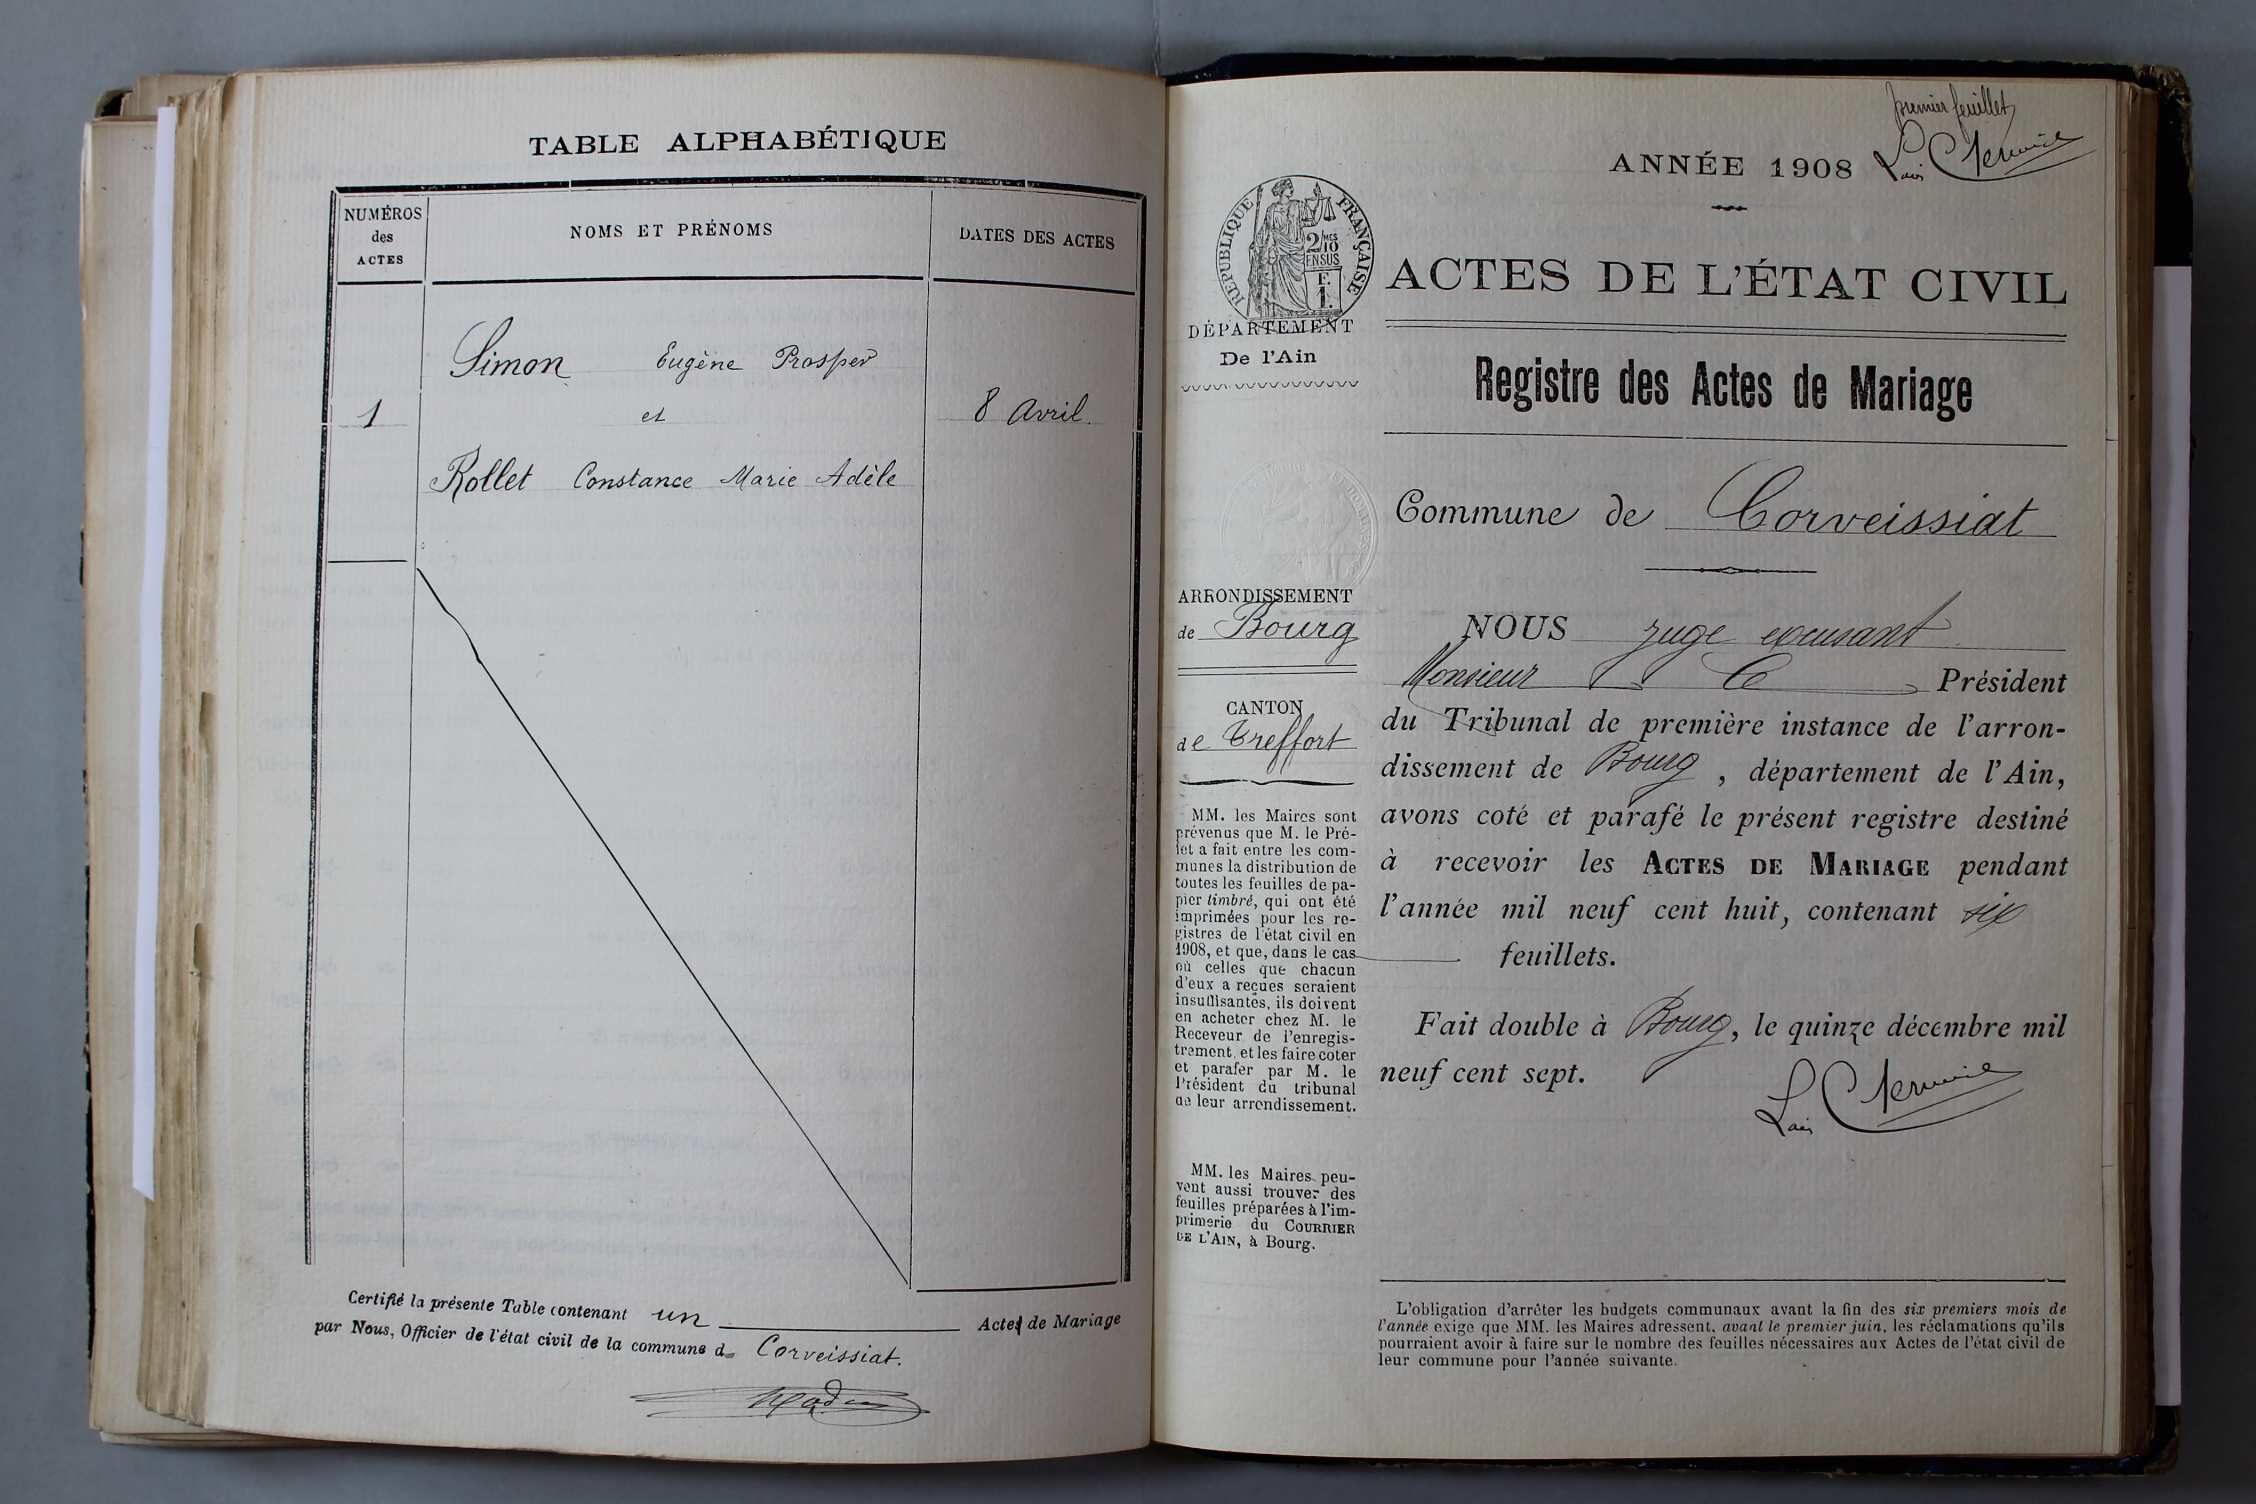 TABLE ALPHABÉTIQUE
NUMÉROS
des
ACTES
NOMS ET PRÉNOMS
DATES DES ACTES
Simon Eugène Prosper
1 et 8 Avril.
Rollet Constance Marie Adèle
Certifié la présente Table contenant un Actes de Mariage
par Nous, Officier de l'état civil de la commune d Corveissiat.
premier feuillet
ANNÉE 1908
RÉPUBLIQUE FRANÇAISE
2/10 MES
EN SUS
F.
1.
ACTES DE L'ÉTAT CIVIL
DÉPARTEMENT
De l'Ain
Registre des Actes de Mariage
Commune de Corveissiat
ARRONDISSEMENT
de Bourg
CANTON
de Treffort
MM. les Maires sont
prévenus que M. le Pré-
fet a fait entre les com-
munes la distribution de
toutes les feuilles de pa-
pier timbré, qui ont été
imprimées pour les re-
gistres de l'état civil en
1908, et que, dans le cas
où celles que chacun
d'eux a reçues seraient
insuffisantes, ils doivent
en acheter chez M. le
Receveur de l'enregis-
trement, et les faire coter
et parafer par M. le
Président du tribunal
de leur arrondissement.
MM. les Maires peu-
vent aussi trouver des
feuilles préparées à l'im-
primerie du COURRIER
DE L'AIN, à Bourg.
NOUS juge excusant
Monsieur le Président
du Tribunal de première instance de l'arron-
dissement de Bourg, département de l'Ain,
avons coté et parafé le présent registre destiné
à recevoir les ACTES DE MARIAGE pendant
l'année mil neuf cent huit, contenant six
feuillets.
Fait double à Bourg, le quinze décembre mil
neuf cent sept.
L'obligation d'arrêter les budgets communaux avant la fin des six premiers mois de
l'année exige que MM. les Maires adressent, avant le premier juin, les réclamations qu'ils
pourraient avoir à faire sur le nombre des feuilles nécessaires aux Actes de l'état civil de
leur commune pour l'année suivante.